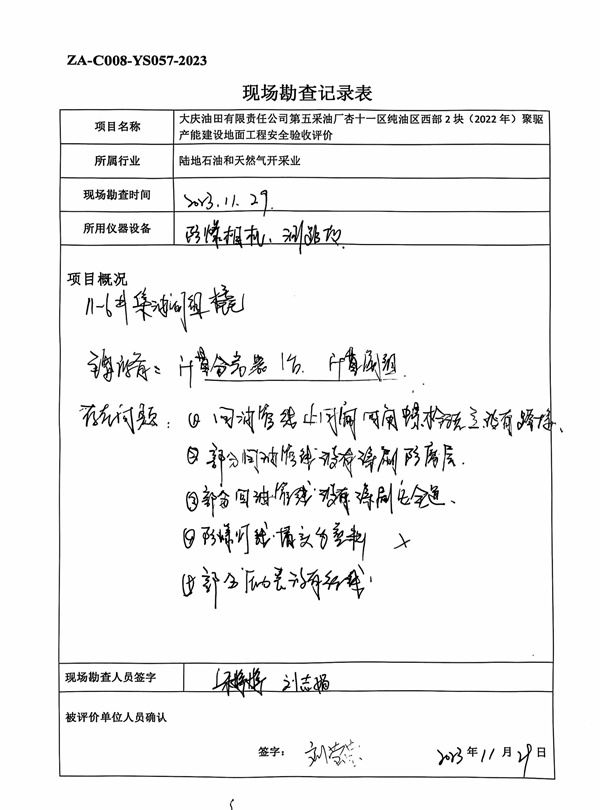 ZA-C008-YS057-2023
现场勘查记录表
项目名称
大庆油田有限责任公司第五采油厂杏十一区纯油区西部 2 块（2022 年）聚驱
产能建设地面工程安全验收评价
所属行业
陆地石油和天然气开采业
现场勘查时间
2023.11.29.
所用仪器设备
防爆相机、测距仪
项目概况
11-6# 集油阀组橇
计量分离器 1台. 计量阀组
存在问题：① 回油管线止回阀 没有跨接、
② 部分回油管线没有涂刷防腐层.
③ 部分回油管线没有涂刷
④ 防爆灯
部分压力表没有
现场勘查人员签字
刘志娟
被评价单位人员确认
签字：
2023 年 11 月 29 日